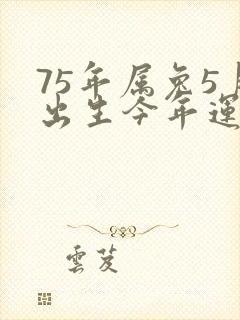 75年属兔5月
出生今年運
雲芨